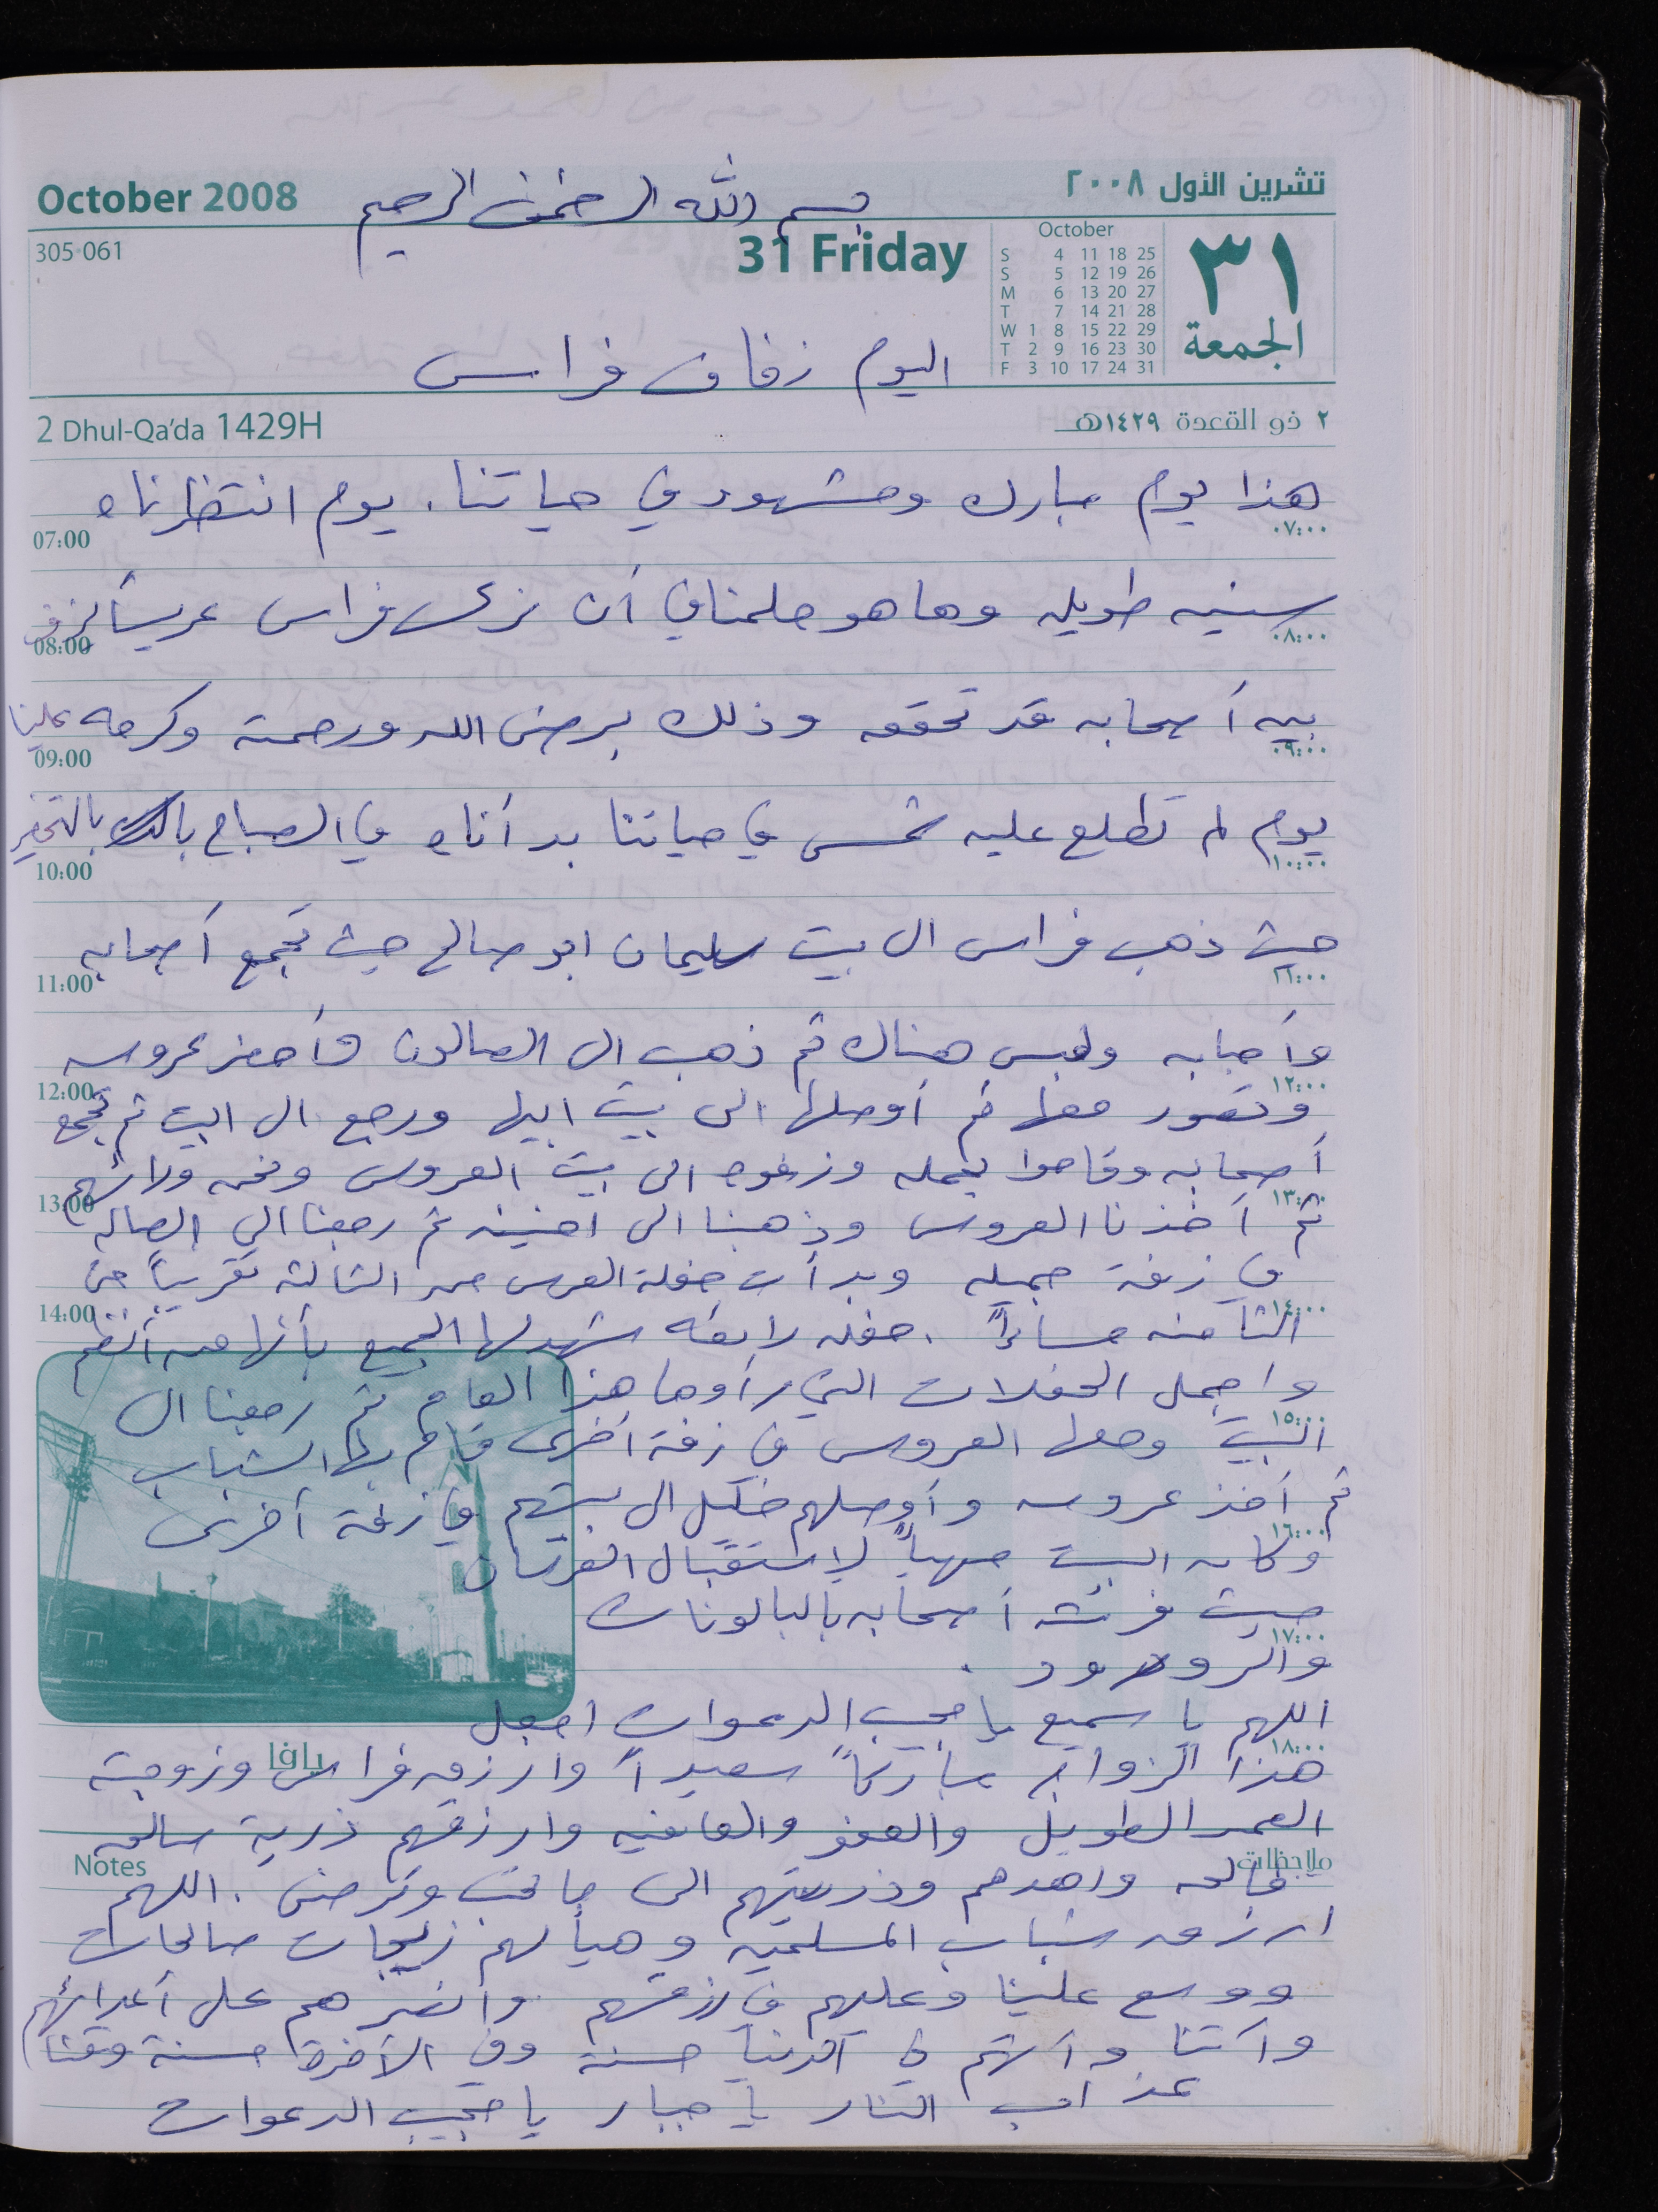 October 2008
تشرين الأول ٢٠٠٨
بسم الله الرحمن الرحيم
305·061
31 Friday
October
S 4 11 18 25
S 5 12 19 26
M 6 13 20 27
T 7 14 21 28
W 1 8 15 22 29
T 2 9 16 23 30
F 3 10 17 24 31
٣١
الجمعة
اليوم زفاف فراس
2 Dhul-Qa'da 1429H
٢ ذو القعدة ١٤٢٩هـ
هذا يوم مبارك ومشهود في حياتنا. يوم انتظرناه
07:00 ٠٧:٠٠
سنين طويله وها هو حلمنا في أن نرى فراس عريساً يزف
08:00 ٠٨:٠٠
بين أصحابه قد تحقق وذلك برضى الله ورحمته وكرمه علينا
09:00 ٠٩:٠٠
يوم لم تطلع عليه شمس في حياتنا بدأناه في الصباح بالتحضير
10:00 ١٠:٠٠
حيث ذهب فراس الى بيت سليمان ابو صالح حيث تجمع أصحابه
11:00 ١١:٠٠
وأحبابه ولبس هناك ثم ذهب الى الصالون وأحضر عروسه
12:00 ١٢:٠٠
وتصور معها ثم أوصلها الى بيت ابيها ورجع الى البيت ثم تجمع
أصحابه وقاموا بحمله وزفوه الى بيت العروس ونحن ورائهم
13:00 ١٣:٠٠
ثم أخذنا العروس وذهبنا الى رجعنا الى الصاله
في زفة جميله وبدأت حفلة العرس من الثالثة تقريباً حتى
14:00 ١٤:٠٠
الثامنه مساءاً. حفله رائعه شهد لها الجميع بأنها من أنظم
واجمل الحفلات التي رأوها هذا العام ثم رجعنا الى
١٥:٠٠
البيت ومعها العروس في زفة أخرى قام بها الشباب
ثم أخذ عروسه وأوصلهم خليل الى بيتهم في زفة أخرى
١٦:٠٠
وكان البيت مهيأً لاستقبال العرسان
حيث فرشه أصحابه بالبالونات
١٧:٠٠
والورود.
اللهم يا سميع يا مجيب الدعوات اجعل
١٨:٠٠
يافا
هذا الزواج مباركاً سعيداً وارزق فراس وزوجته
العمر الطويل والعفو والعافيه وارزقهم ذرية صالحه
Notes ملاحظات
واهدهم وذريتهم الى ما تحب وترضى. اللهم
ارزق شباب المسلمين وهيأ لهم زيجات صالحات
ووسع علينا وعليهم في رزقهم وانصرهم على أعدائهم
وآتنا وآتهم في الدنيا حسنة وفي الآخرة حسنة وقنا
عذاب النار يا جبار يا مجيب الدعوات